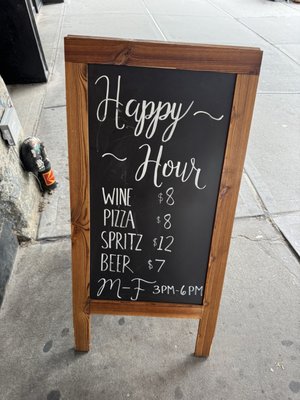 ~ Happy ~
~ Hour
WINE $8
PIZZA $8
SPRITZ $12
BEER $7
M-F 3PM-6PM